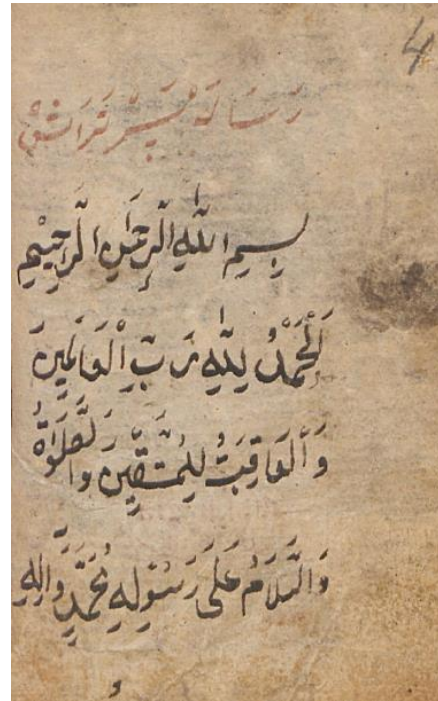 4
رَسَالَهْ سَرْ تَرَاشِیْ
بِسْمِ اللهِ الرَّحْمٰنِ الرَّحِيْمِ
اَلْحَمْدُ لِلّٰهِ رَبِّ الْعَالَمِيْنَ
وَالْعَاقِبَتُ لِلْمُتَّقِيْنَ وَالصَّلَوٰةُ
وَالسَّلَامُ عَلَى رَسُوْلِهِ مُحَمَّدٍ وَاٰلِهِ
و